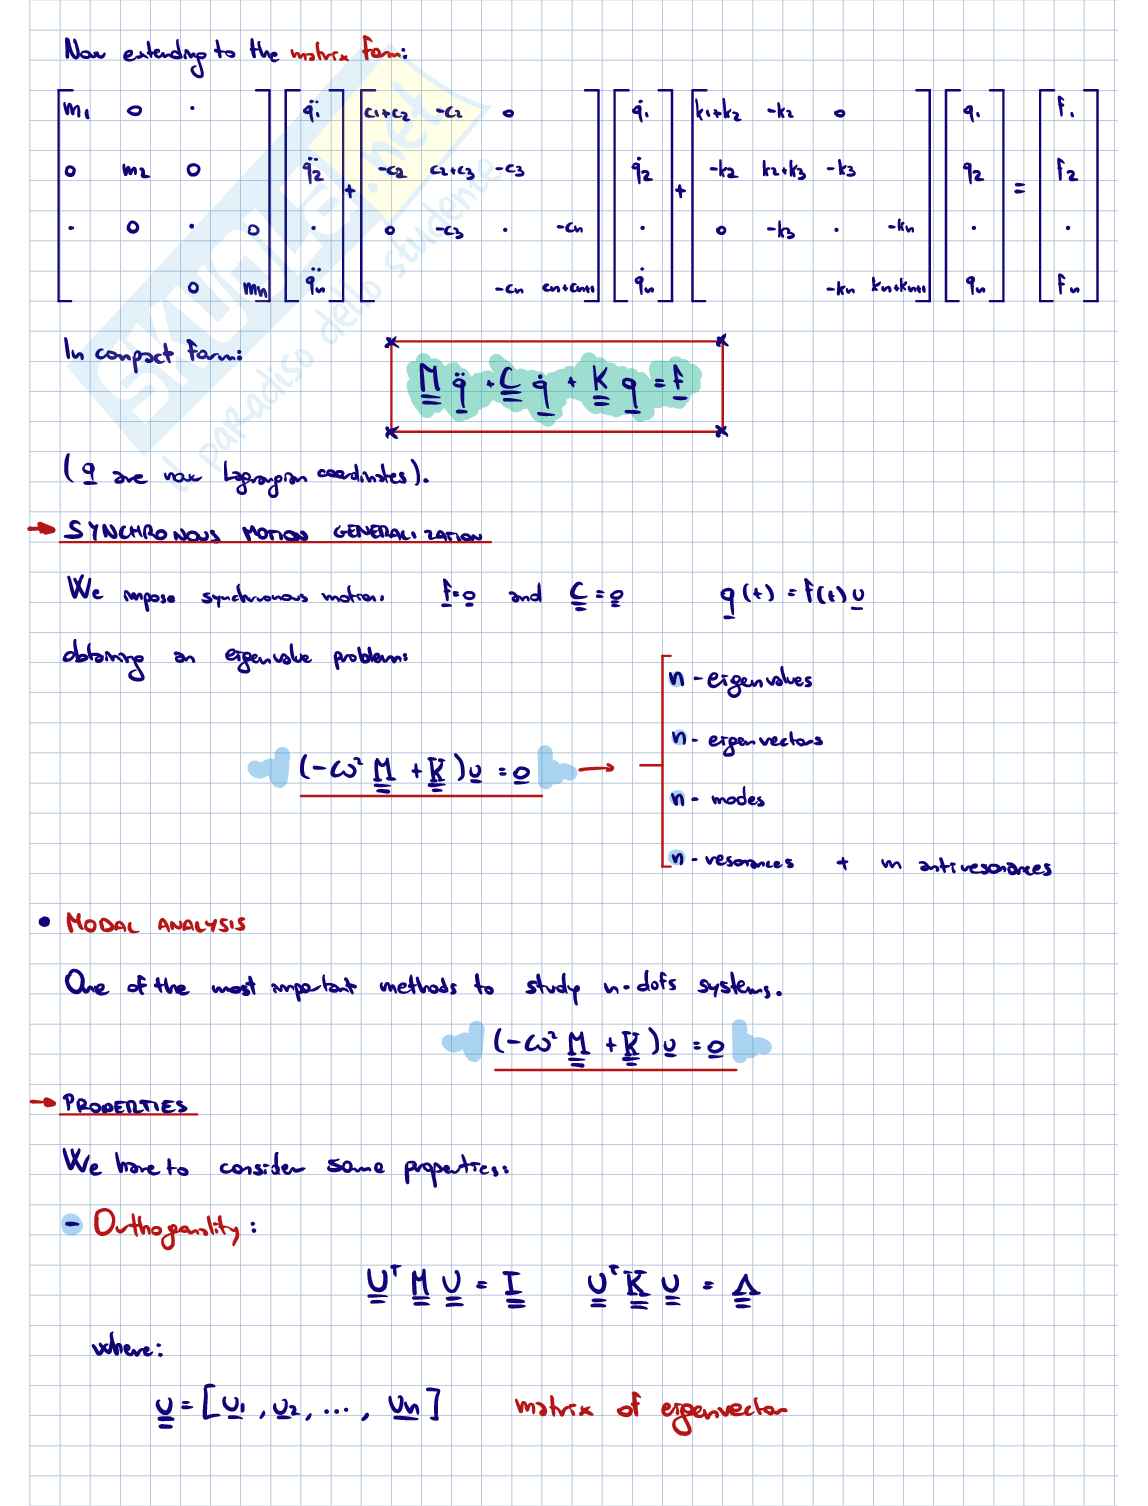 Now extending to the matrix form:
[m1 0 · ; 0 m2 0 ; · 0 · 0 ; 0 mn] [q̈1 ; q̈2 ; · ; q̈n] + [c1+c2 -c2 0 ; -c2 c2+c3 -c3 ; 0 -c3 · -cn ; -cn cn+cn+1] [q̇1 ; q̇2 ; · ; q̇n] + [k1+k2 -k2 0 ; -k2 k2+k3 -k3 ; 0 -k3 · -kn ; -kn kn+kn+1] [q1 ; q2 ; · ; qn] = [f1 ; f2 ; · ; fn]
In compact form:
M q̈ + C q̇ + K q = f
(q are now Lagrangian coordinates).
→ SYNCHRONOUS MOTION GENERALIZATION
We impose synchronous motion: f=0 and C=0 q(t) = f(t) u
obtaining an eigenvalue problem:
n - eigenvalues
n - eigenvectors
(-ω² M + K) u = 0 →
n - modes
n - resonances + m antiresonances
• MODAL ANALYSIS
One of the most important methods to study n-dofs systems.
(-ω² M + K) u = 0
→ PROPERTIES
We have to consider some properties:
- Orthogonality:
Uᵀ M U = I Uᵀ K U = Λ
where:
U = [u1, u2, ..., un] matrix of eigenvector
SKUOLA.net
il paradiso dello studente